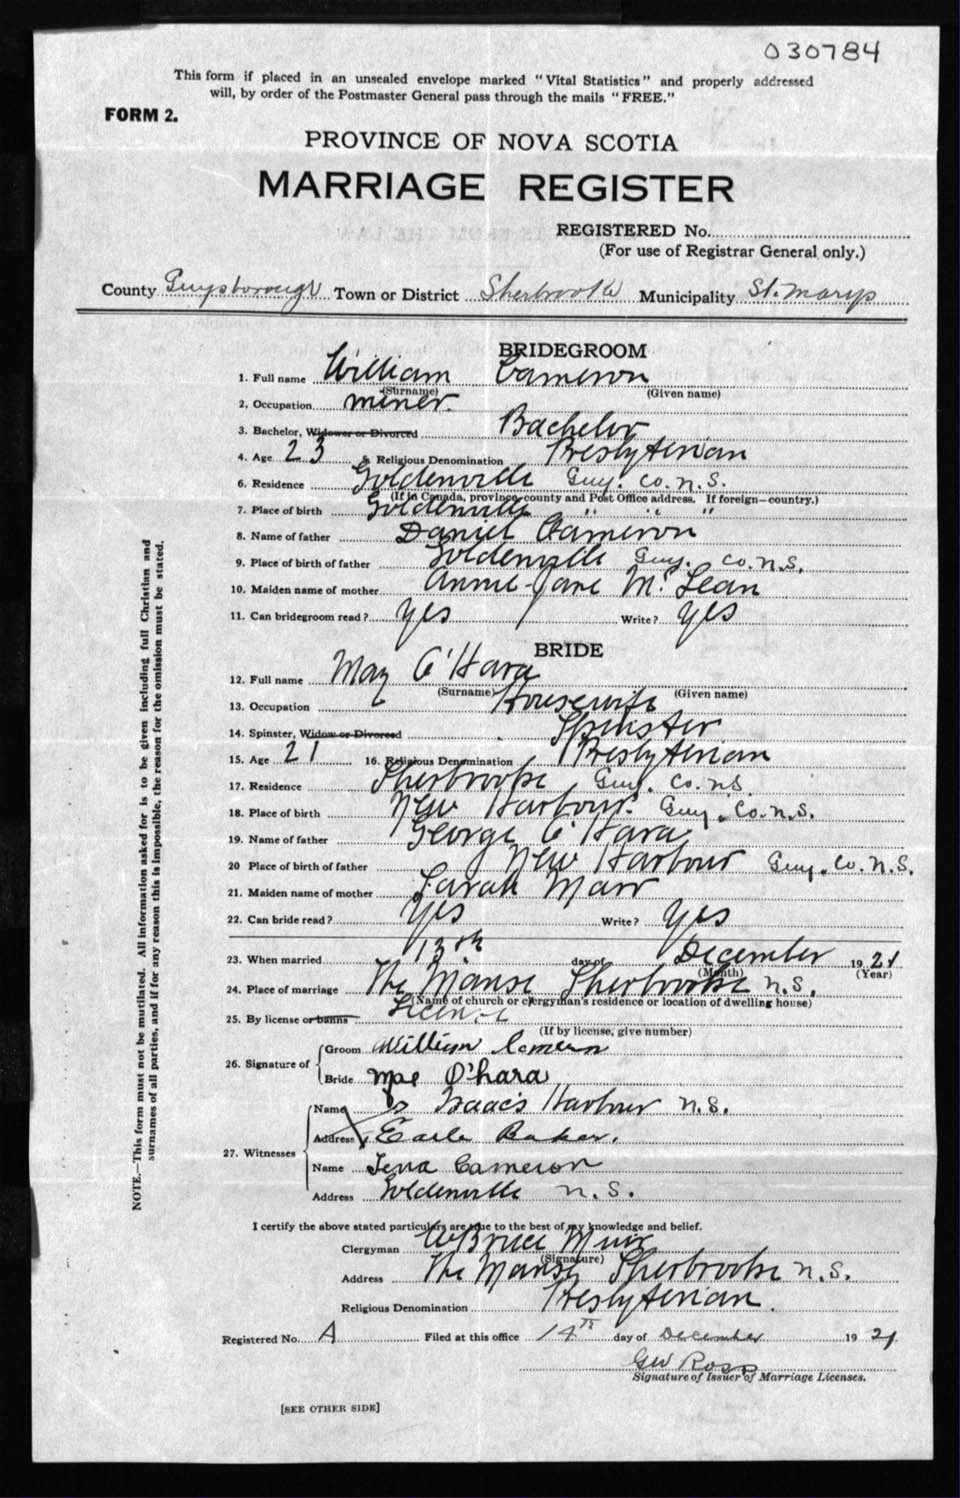 030784
This form if placed in an unsealed envelope marked "Vital Statistics" and properly addressed
will, by order of the Postmaster General pass through the mails "FREE."
FORM 2.
PROVINCE OF NOVA SCOTIA
MARRIAGE REGISTER
REGISTERED No.
(For use of Registrar General only.)
County Guysborough Town or District Sherbrooke Municipality St. Marys
BRIDEGROOM
1. Full name William Cameron
(Surname) (Given name)
2. Occupation miner.
3. Bachelor, Widower or Divorced Bachelor
4. Age 23 5. Religious Denomination Presbyterian
6. Residence Goldenville Guy. Co. N.S.
(If in Canada, province, county and Post Office address. If foreign—country.)
7. Place of birth Goldenville " " "
8. Name of father Daniel Cameron
9. Place of birth of father Goldenville Guy. Co. N.S.
10. Maiden name of mother Annie Jane McLean
11. Can bridegroom read? yes Write? yes
BRIDE
12. Full name May O'Hara
(Surname) (Given name)
13. Occupation Housewife
14. Spinster, Widow or Divorced Spinster
15. Age 21 16. Religious Denomination Presbyterian
17. Residence Sherbrooke Guy. Co. N.S.
18. Place of birth New Harbour. Guy. Co. N.S.
19. Name of father George O'Hara
20 Place of birth of father New Harbour Guy. Co. N.S.
21. Maiden name of mother Sarah Marr
22. Can bride read? yes Write? yes
23. When married 13th day of December 1921
(Month) (Year)
24. Place of marriage The Manse Sherbrooke N.S.
(Name of church or clergyman's residence or location of dwelling house)
25. By license or banns License
(If by license, give number)
26. Signature of Groom William Cameron
Bride Mae O'hara
Name Isaac's Harbour N.S.
Address Earle Baker.
27. Witnesses
Name Tena Cameron
Address Goldenville N.S.
I certify the above stated particulars are true to the best of my knowledge and belief.
Clergyman W Bruce Muir
(Signature)
Address The Manse Sherbrooke N.S.
Religious Denomination Presbyterian.
Registered No. A Filed at this office 14th day of December 1921
GW Ross
Signature of Issuer of Marriage Licenses.
[SEE OTHER SIDE]
NOTE.—This form must not be mutilated. All information asked for is to be given including full Christian and
surnames of all parties, and if for any reason this is impossible, the reason for the omission must be stated.